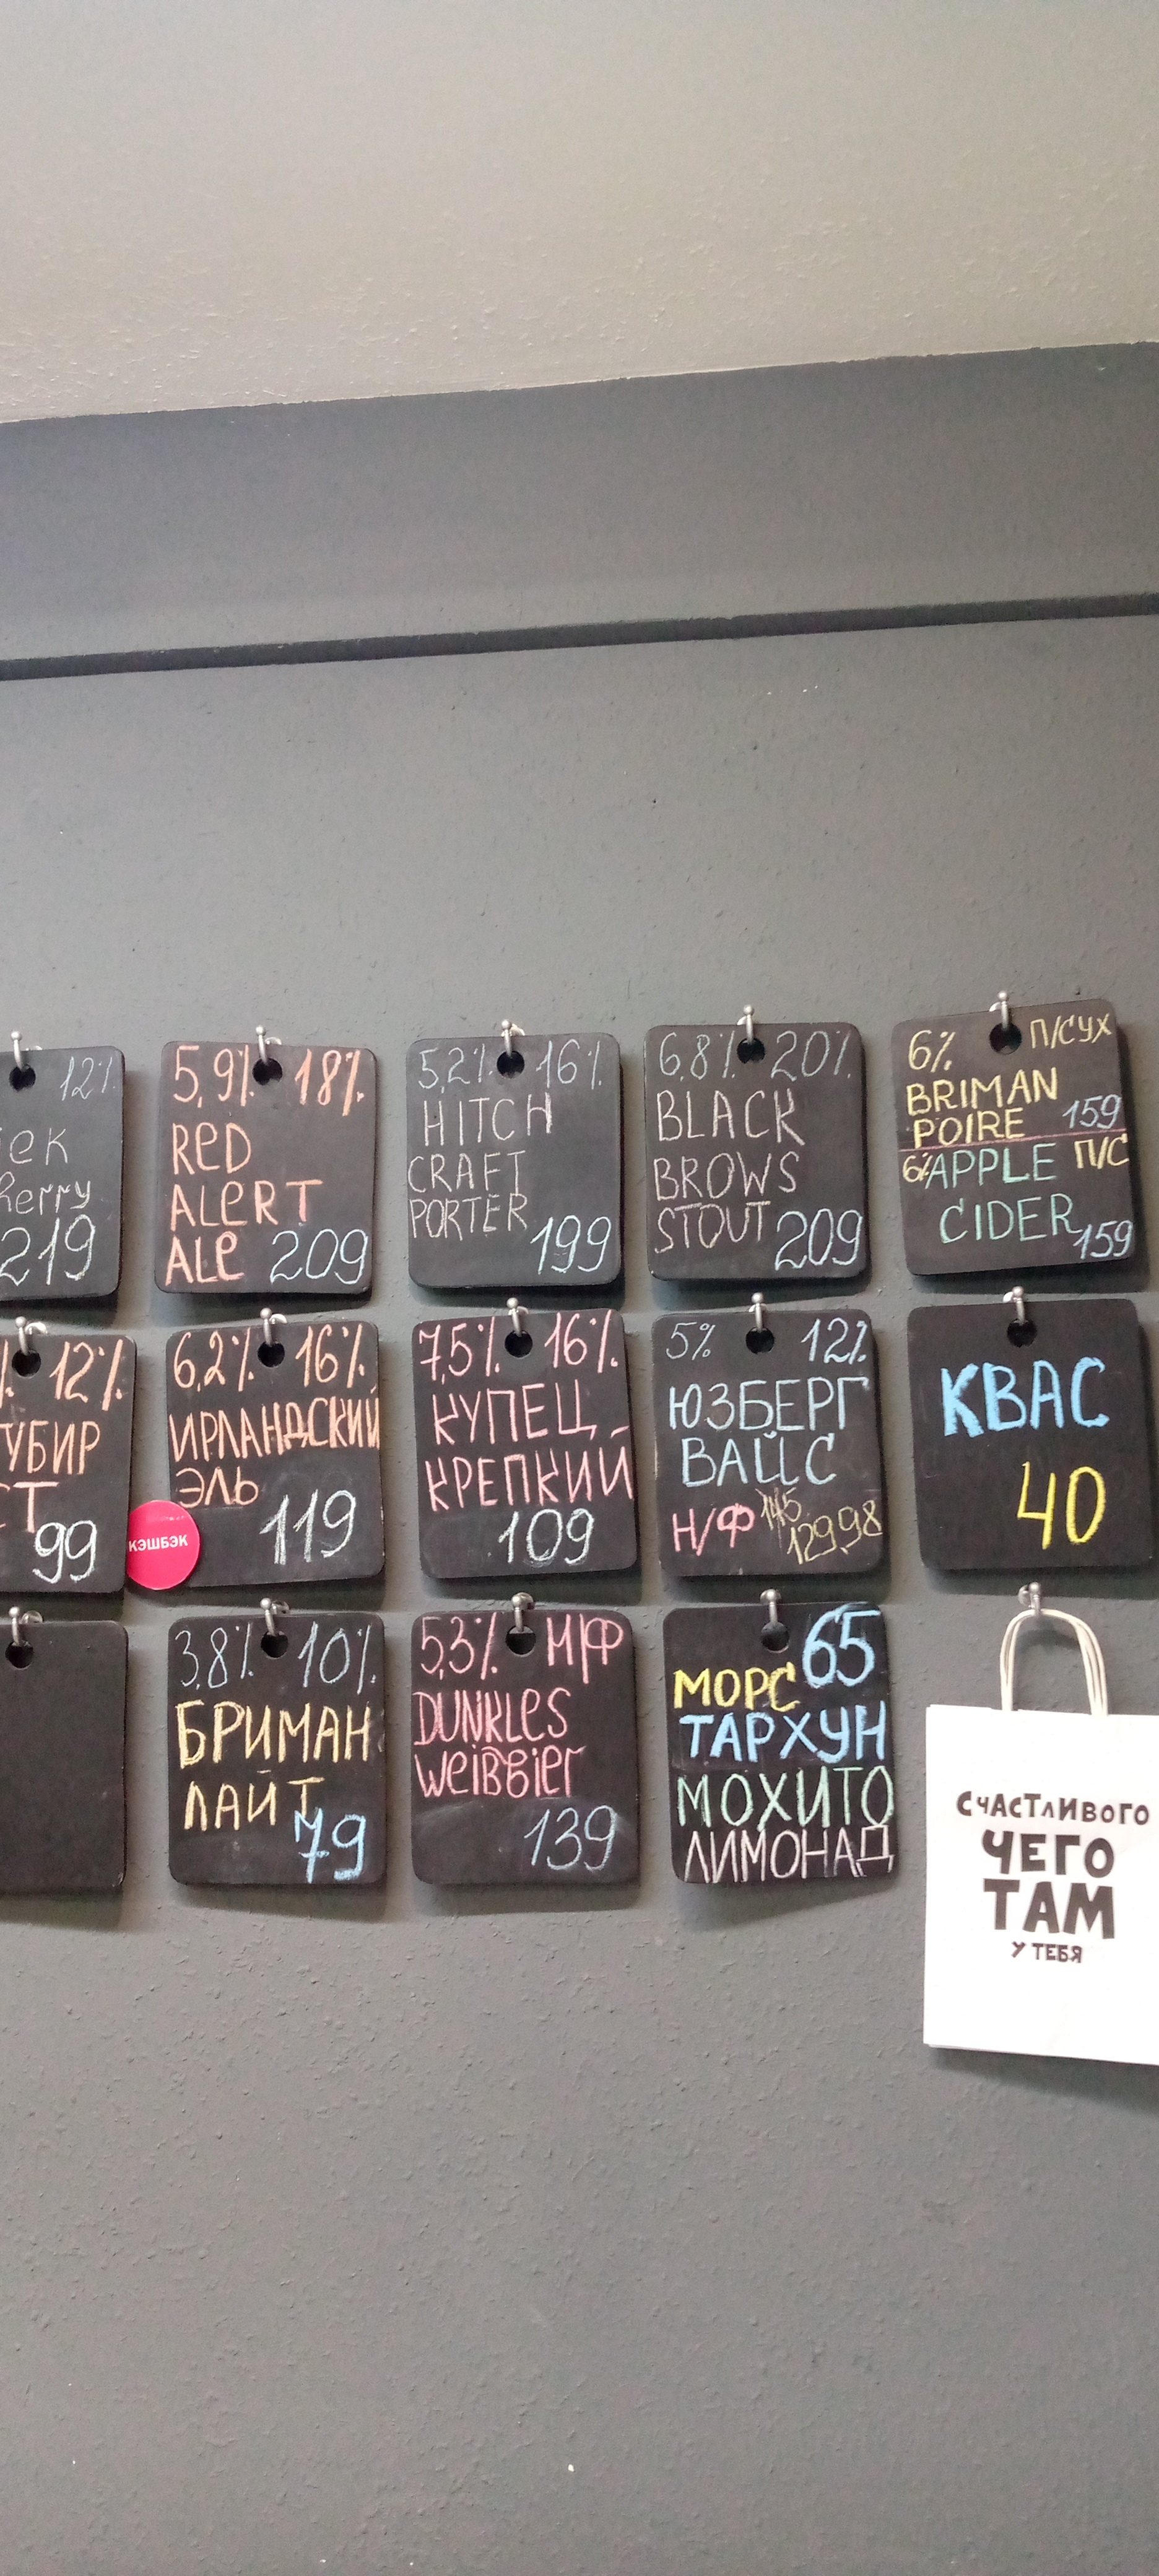 12%
219
5,9% 18%
RED
ALERT
ALE 209
5,2% 16%
HITCH
CRAFT
PORTER
199
6,8% 20%
BLACK
BROWS
STOUT 209
6% П/СУХ
BRIMAN
POIRE 159
6% APPLE П/С
CIDER 159
12%
99
6,2% 16%
ИРЛАНДСКИЙ
ЭЛЬ
119
КЭШБЭК
7,5% 16%
КУПЕЦ
КРЕПКИЙ
109
5% 12%
ЮЗБЕРГ
ВАЙС
Н/Ф 145
129,98
КВАС
40
3,8% 10%
БРИМАН
ЛАЙТ
79
5,3% Н/Ф
DUNKLES
WEIßBIER
139
65
МОРС
ТАРХУН
МОХИТО
ЛИМОНАД
СЧАСТЛИВОГО
ЧЕГО
ТАМ
У ТЕБЯ